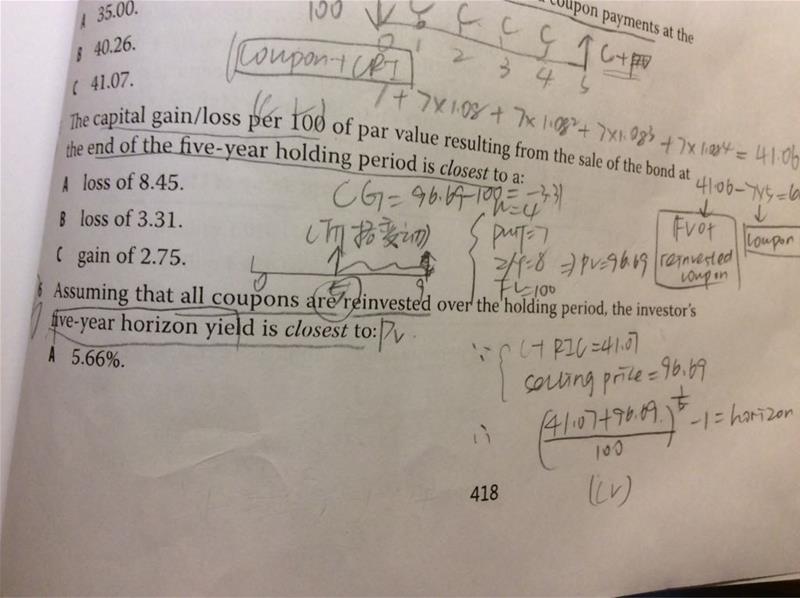 coupon payments at the
A 35.00.
100
C C C C
0 1 2 3 4 5
B 40.26.
Coupon+CRI
C 41.07.
7 + 7×1.08 + 7×1.08² + 7×1.08³ + 7×1.08⁴ = 41.06
The capital gain/loss per 100 of par value resulting from the sale of the bond at
the end of the five-year holding period is closest to a:
41.06-7×5=
A loss of 8.45.
CG = 96.69-100 = -3.31
N=4
B loss of 3.31.
PMT=7
FV of
reinvested
coupon
coupon
C gain of 2.75.
=8 ⇒ PV=96.69
=100
0 9
Assuming that all coupons are reinvested over the holding period, the investor's
five-year horizon yield is closest to:
PV
A 5.66%.
∵ C+RIC=41.07
selling price=96.69
∴ (41.07+96.69 / 100)^1/5 -1 = horizon
418